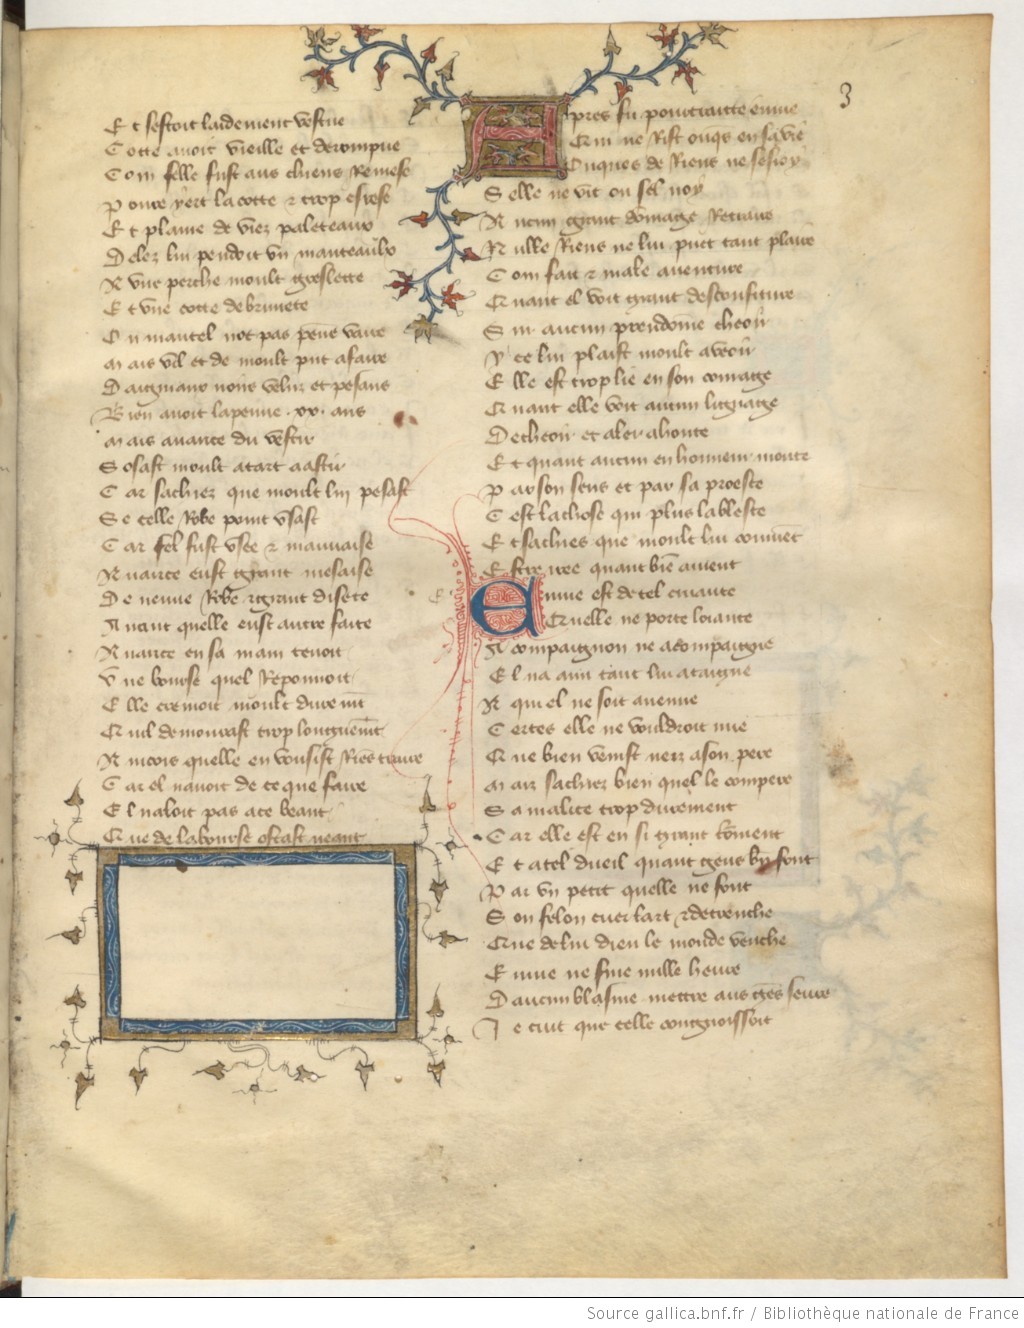 3
Et sestoit laidement vestue
Cotte auoit vieille et derompue
Com selle fust aus chiens remese
Poure yert la cotte et trop esrese
Et plaine de viez paleteaux
Delez lui pendoit vn manteaulx
A vne perche moult greslette
Et vne cotte de brunete
Ou mantel not pas pene vaire
Mais vil et de moult put afaire
Daigniaux noirs velus et pesans
Bien auoit la penne .xx. ans
Mais auarice du vestir
Sosast moult atart aastir
Car sachiez que moult lui pesast
Se celle robe point vsast
Car sel fust vsee et mauuaise
Auarice eust grant mesaise
De neuue robe et grant disete
Auant quelle eust autre faite
Auarice en sa main tenoit
Vne bourse quel reponnoit
Elle cremoit moult durement
Que il demourast trop longuement
Aincois quelle en vousist riens traire
Car el nauoit de ce que faire
El naloit pas a ce beant
Que de la bourse ostast neant
Apres fu pourtraitte enuie
Qui ne rist onqs en sa vie
Nuques de riens ne sesioy
Selle ne vit ou sel noy
Aucun grant domage retraire
Nulle riens ne lui puet tant plaire
Com fait et male auenture
Quant el voit grant desconfiture
Sur aucun preudome cheoir
Yce lui plaist moult aveoir
Elle est trop lie en son courage
Quant elle voit aucun lignage
Decheoir et aler a honte
Et quant aucun en honneur monte
Par son sens et par sa proeste
Cest la chose qui plus la bleste
Et saches que moult lui conuient
Estre iree quant bien auient
Enuie est de tel cruaute
Quelle ne porte loiaute
A compaignon ne a compaignie
El na ami tant lui ataigne
A qui el ne soit anemie
Certes elle ne vouldroit mie
Que bien venist neiz a son pere
Mais sachiez bien quel le compere
Sa malice trop durement
Car elle est en si grant torment
Et a tel dueil quant gens bn font
Par vn petit quelle ne font
Son felon cuer lart et detrenche
Que de lui dieu le monde venche
Enuie ne fine nulle heure
Daucun blasme mettre aus gens seure
Je cuit que celle congnoissoit
Source gallica.bnf.fr / Bibliothèque nationale de France